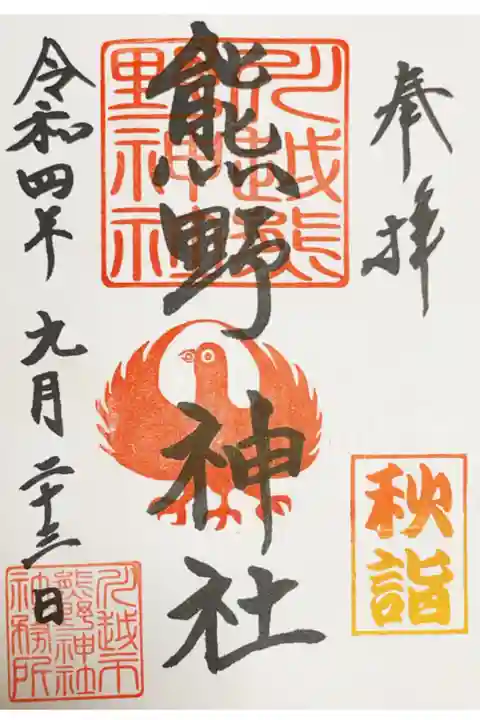 奉拝
秋詣
川越熊野神社
熊野神社
令和四年九月二十三日
川越市熊野神社社務所